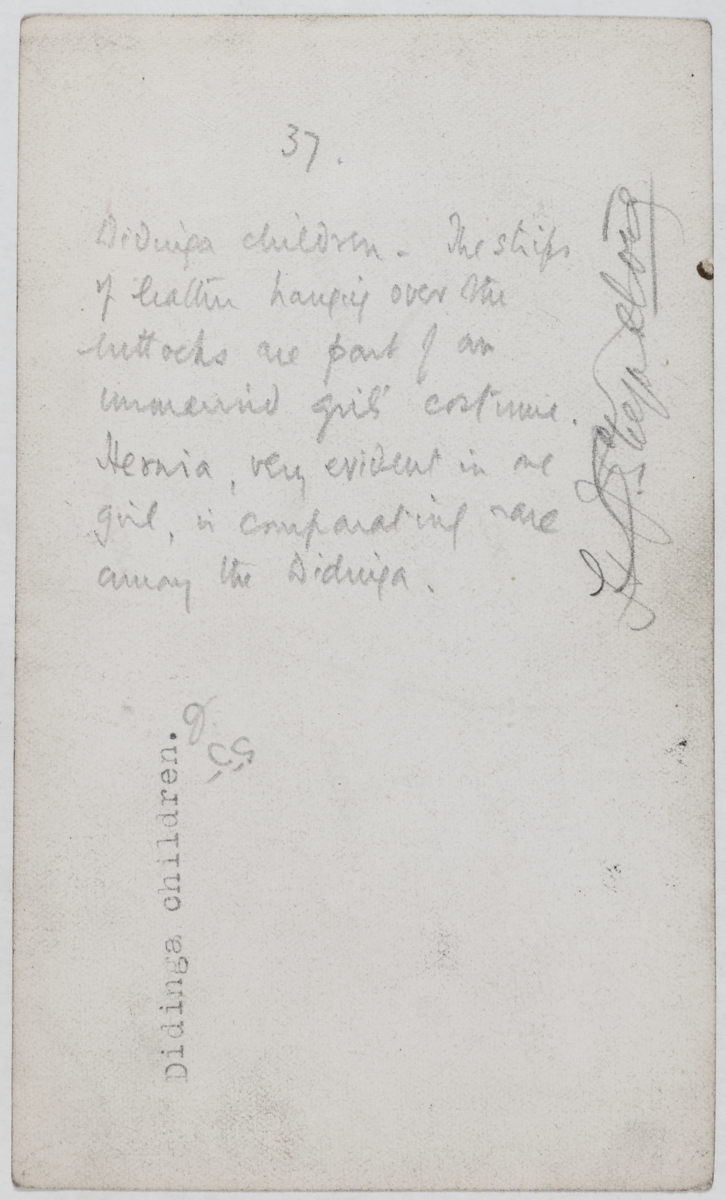 37.
Didinga children. The strips
of leather hanging over the
buttocks are part of an
unmarried girls' costume.
Hernia, very evident in one
girl, is comparatively rare
among the Didinga.
Didinga children.